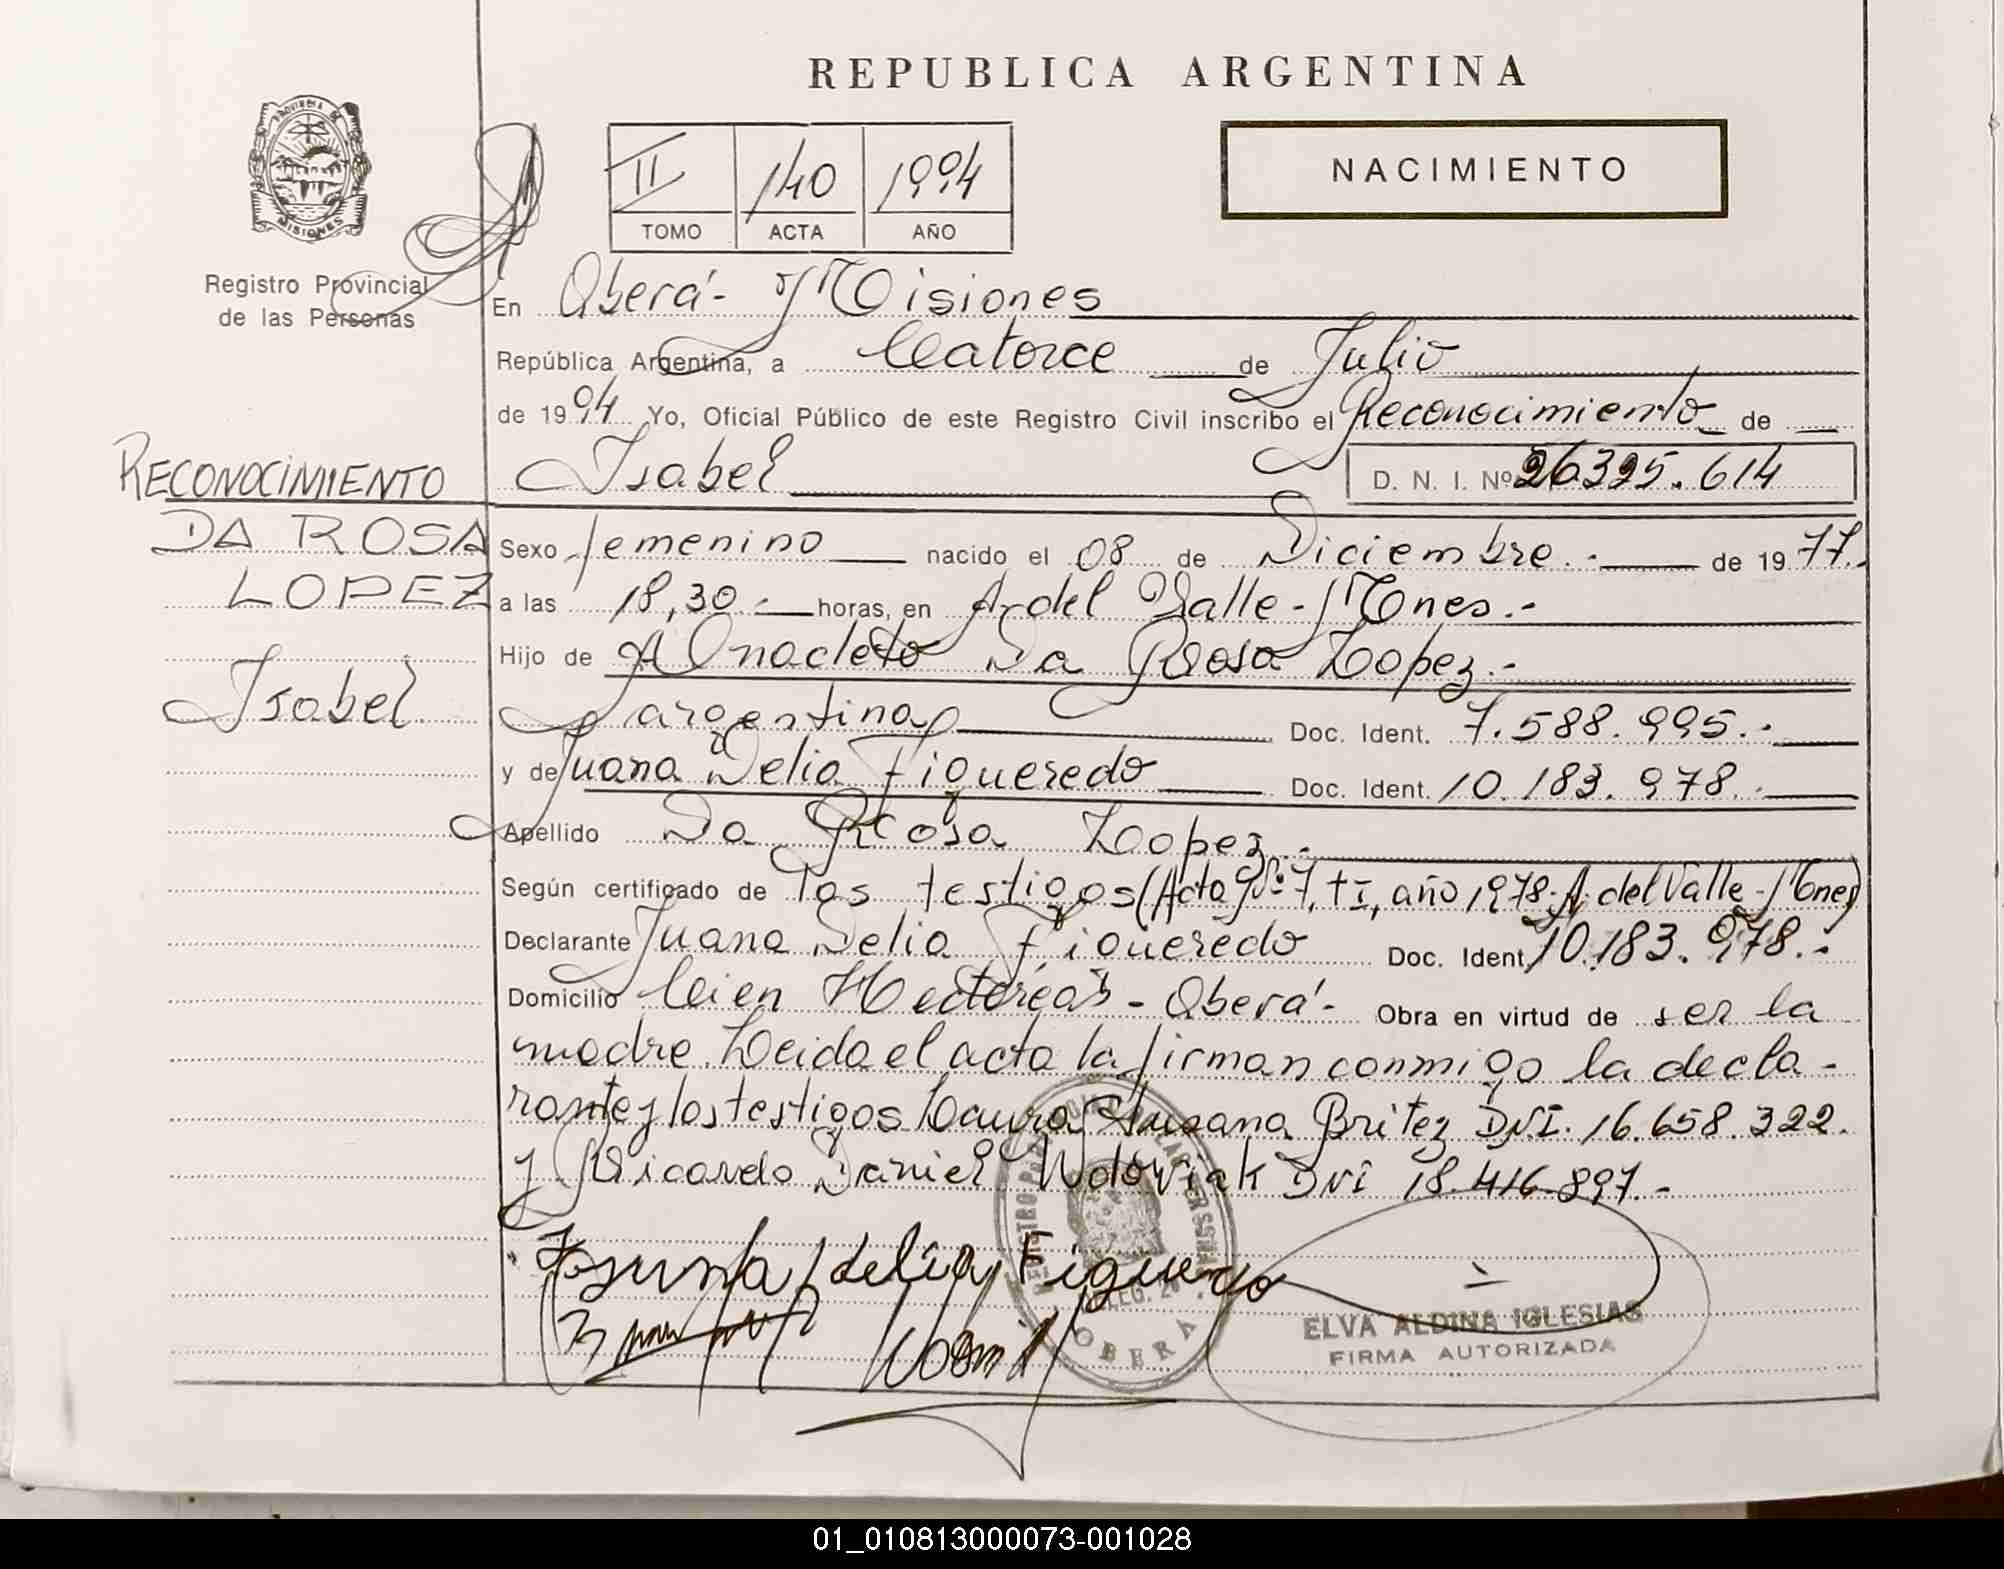 REPUBLICA ARGENTINA
PROVINCIA DE MISIONES
Registro Provincial
de las Personas
II 140 1994
TOMO ACTA AÑO
NACIMIENTO
En Oberá - Misiones
República Argentina, a Catorce de Julio
de 1994 Yo, Oficial Público de este Registro Civil inscribo el Reconocimiento de
Isabel D. N. I. Nº 26325.614
RECONOCIMIENTO
DA ROSA
LOPEZ
Isabel
Sexo femenino nacido el 08 de Diciembre.- de 1977.-
a las 18,30.- horas, en A. del Valle - Mnes.-
Hijo de Anacleto Da Rosa Lopez.-
argentina Doc. Ident. 7.588.995.-
y de Juana Delia Figueredo Doc. Ident. 10.183.978.-
Apellido Da Rosa Lopez.-
Según certificado de los testigos (Acta Nº 7, tI, año 1978- A. del Valle - Mnes)
Declarante Juana Delia Figueredo Doc. Ident. 10.183.978.-
Domicilio Cien Hectáreas - Oberá - Obra en virtud de ser la
madre. Leida el acta la firman conmigo la decla-
rante y los testigos Laura Susana Britez DNI. 16.658.322.
y Ricardo Daniel DNI 18.416.897.-
Juana delia Figueredo
OBERA
ELVA ALDINA IGLESIAS
FIRMA AUTORIZADA
01_010813000073-001028